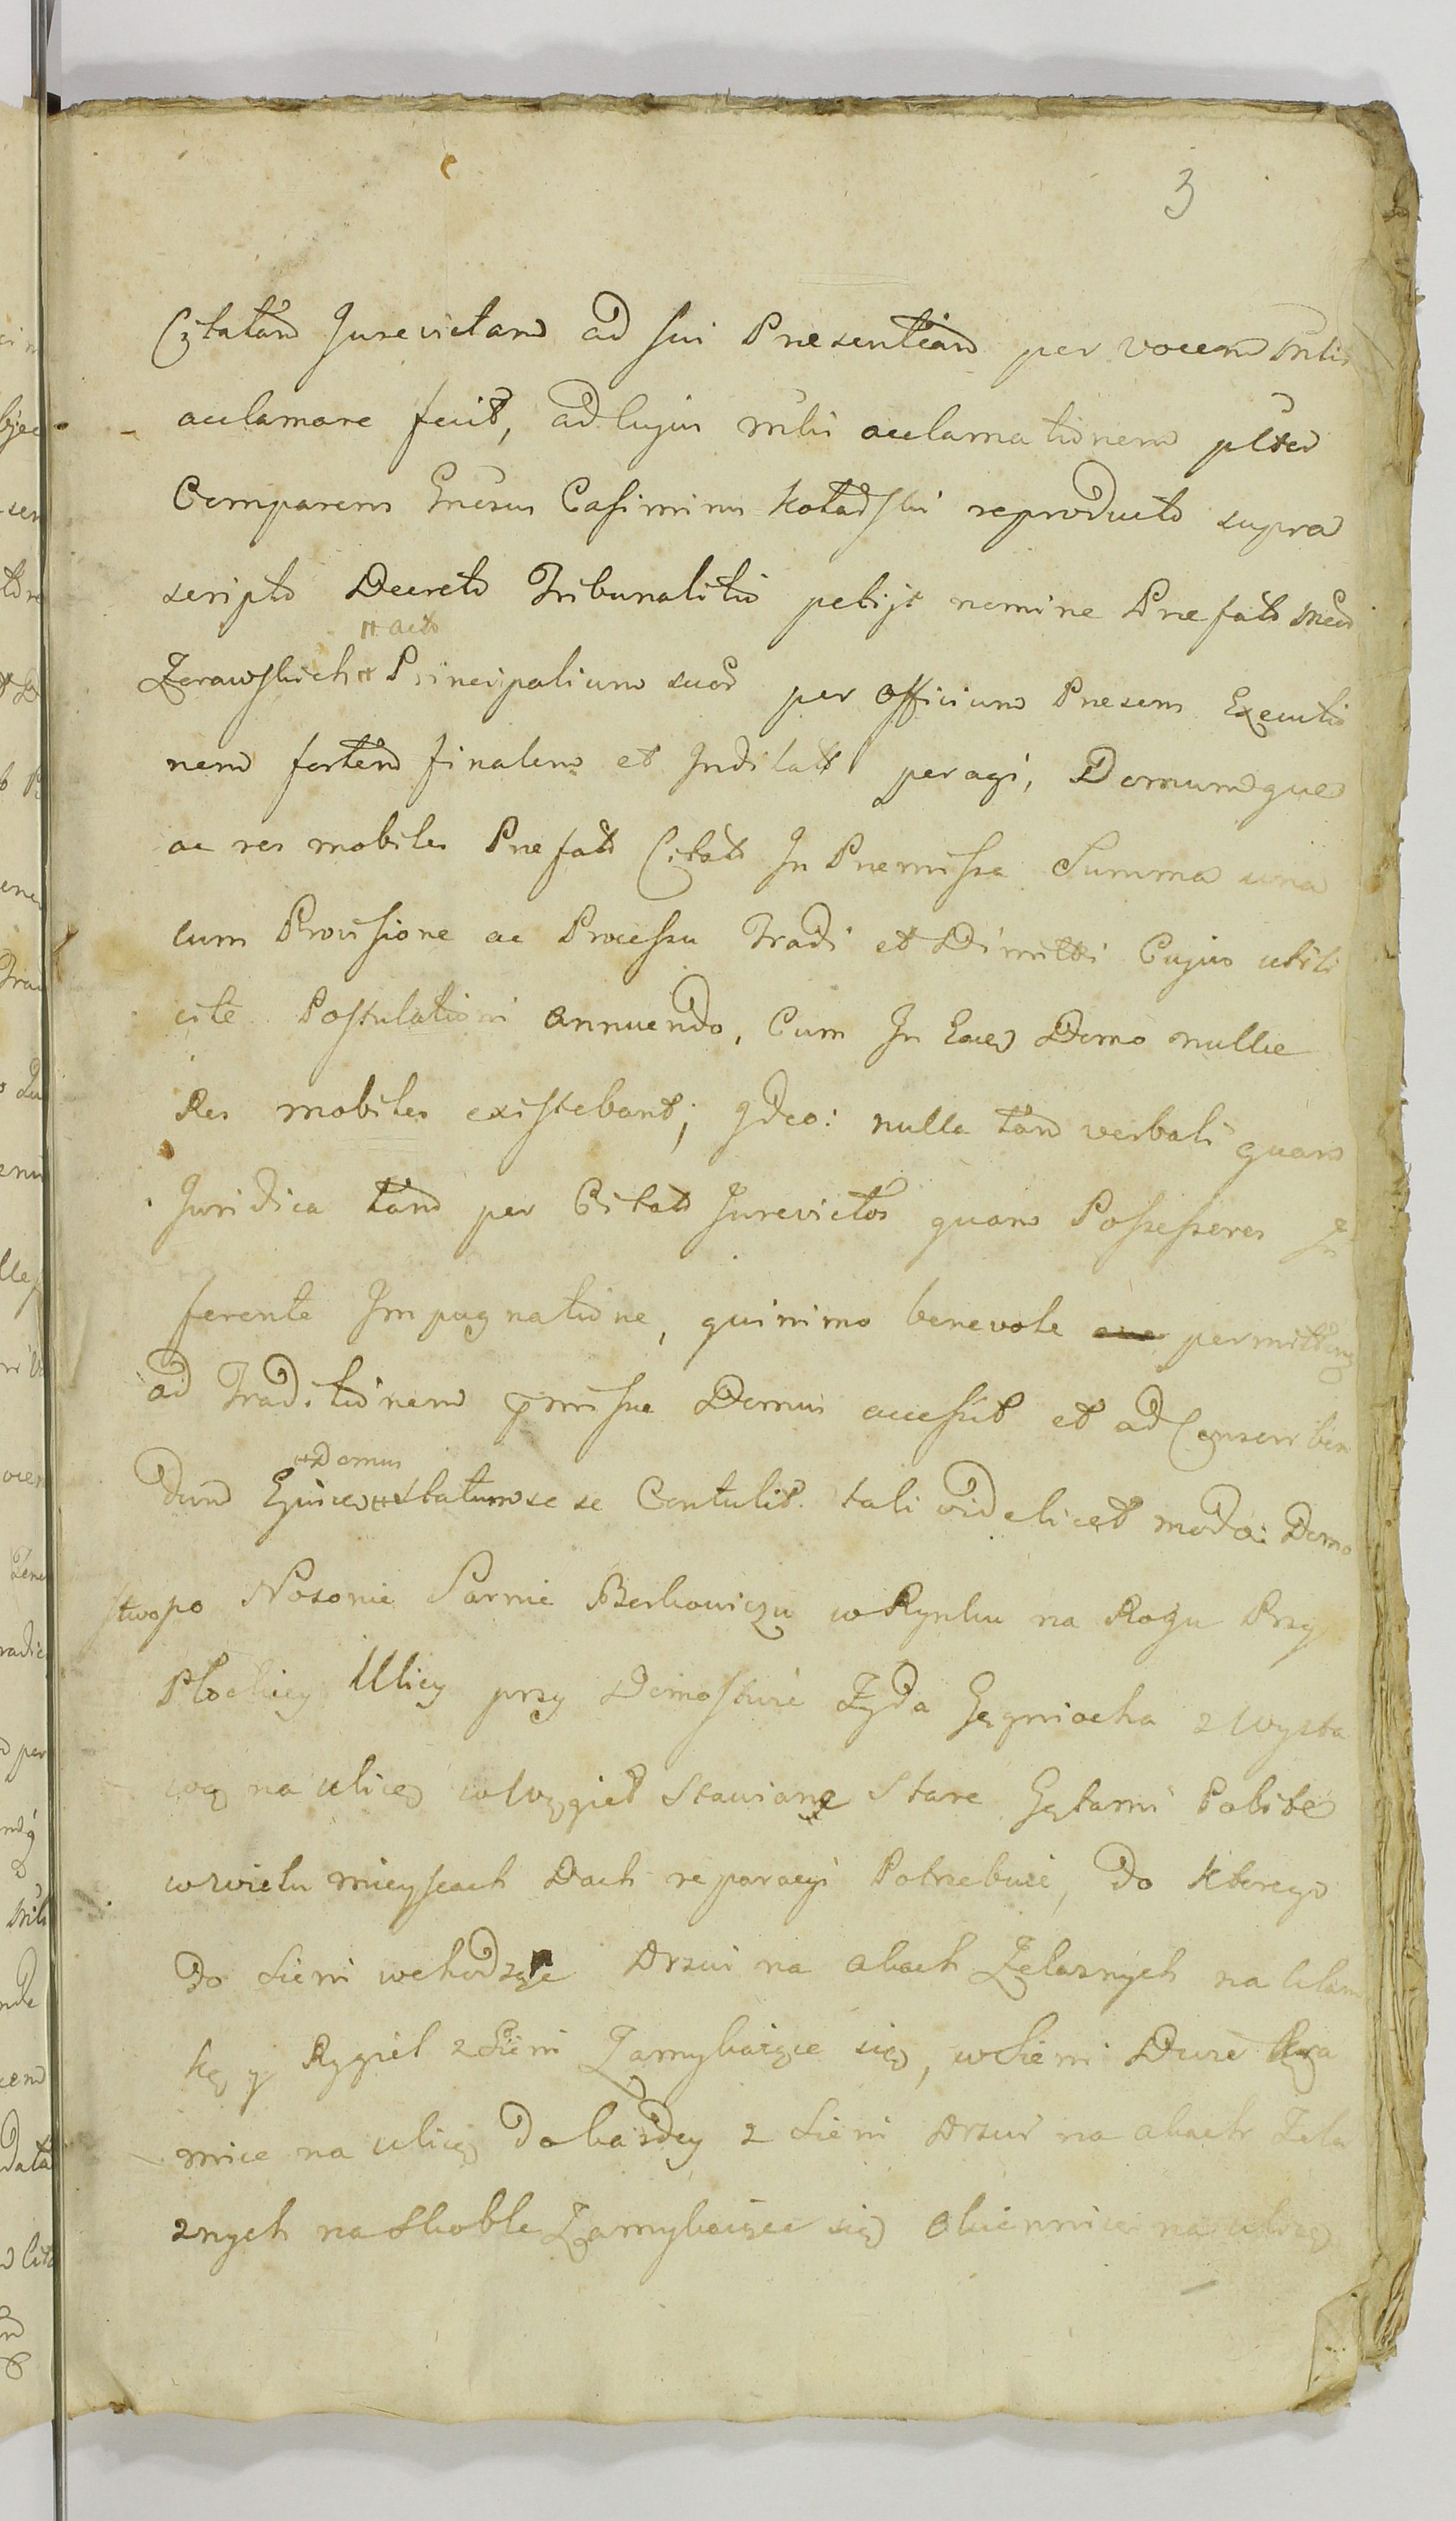 3
Citatam Jurevictam ad sui Presentiam per vocem mlis
acclamare fecit, ad cujus mlis acclamationem
Comparens Gnesus Casimirus Kotarski reproducto supra
scripto Decreto Tribunalitio petijt nomine Prefat
# act
Zerawskich # Principalium suor per officium Presens Executio
nem fortem finalem et Inditatt peragi, Domumque
ac res mobiles Prefat Citat In Premissa Summa una
cum Provisione ac Processu Tradi et Dimitti Cujus utili
cite Postulationi annuendo, Cum In Eaces Domo nullæ
Res mobiles existebant; Ideo: nulla tam verbali quam
Juridica tam per Citat Jurevictos quam Possessores In
ferente Impugnatione, quinimo benevole permitten
ad Traditionem pmissæ Domus accessit et ad Conscriben
# Domus
dum Ejusce # statum se se Contulit. tali videlicet modo: Domo
stwo po Nosonie Parnie Berkowiczu w Rynku na Rogu Przy
Płockiey Ulicy przy Domostwie Zyda Gęgniocha z Wysta
wą na ulicę w Węgieł Stawiane Stare Gętami Pobite
w wielu mieyscach Dach reparacyi Potrzebuie, do ktorego
do Sieni wchodząc Drzwi na akach Zelaznych na klam
kę y Rygiel z Sieni Zamykaiące się, w Sieni Dwie kra
mice na ulicę do każdey z Sieni Drzwi na akach Zela
znych na Skoble Zamykaiące się Okiennice na ulicę